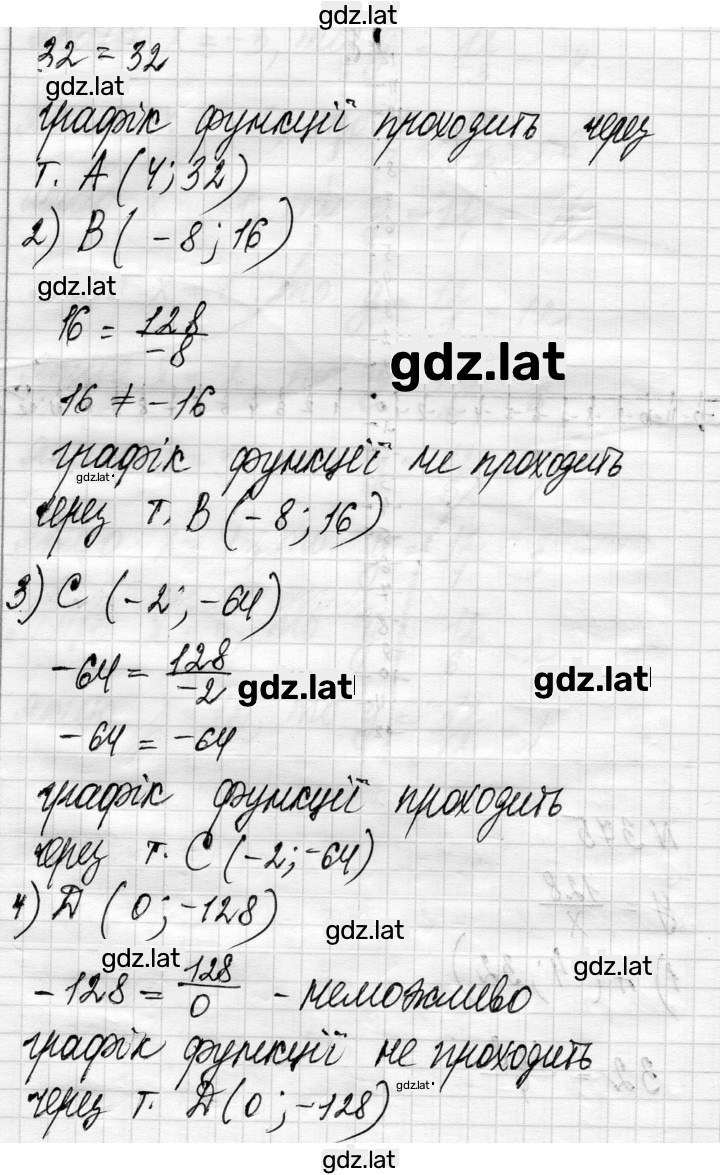 gdz.lat
32 = 32
gdz.lat
графік функції проходить через
т. А (4; 32)
2) В (-8; 16)
gdz.lat
16 = 128/-8
gdz.lat
16 ≠ -16
графік функції не проходить
gdz.lat
через т. В (-8; 16)
3) С (-2; -64)
-64 = 128/-2
gdz.lat
gdz.lat
-64 = -64
графік функції проходить
через т. С (-2; -64)
4) D (0; -128)
gdz.lat
gdz.lat
gdz.lat
-128 = 128/0 - неможливо
графік функції не проходить
gdz.lat
через т. D (0; -128)
gdz.lat